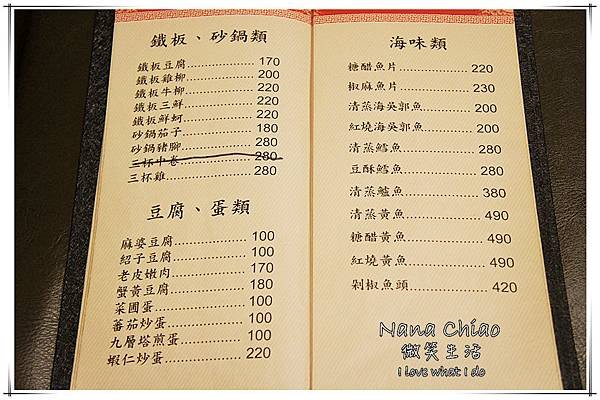 鐵板、砂鍋類
鐵板豆腐 170
鐵板雞柳 200
鐵板牛柳 220
鐵板三鮮 220
鐵板鮮蚵 220
砂鍋茄子 180
砂鍋豬腳 280
三杯中卷 280
三杯雞 280
豆腐、蛋類
麻婆豆腐 100
紹子豆腐 100
老皮嫩肉 170
蟹黃豆腐 180
菜圃蛋 100
蕃茄炒蛋 100
九層塔煎蛋 100
蝦仁炒蛋 220
海味類
糖醋魚片 220
椒麻魚片 230
清蒸海吳郭魚 200
紅燒海吳郭魚 200
清蒸鱈魚 280
豆酥鱈魚 280
清蒸鱸魚 380
清蒸黃魚 490
糖醋黃魚 490
紅燒黃魚 490
剁椒魚頭 420
Nana Chiao
微笑生活
I love what I do